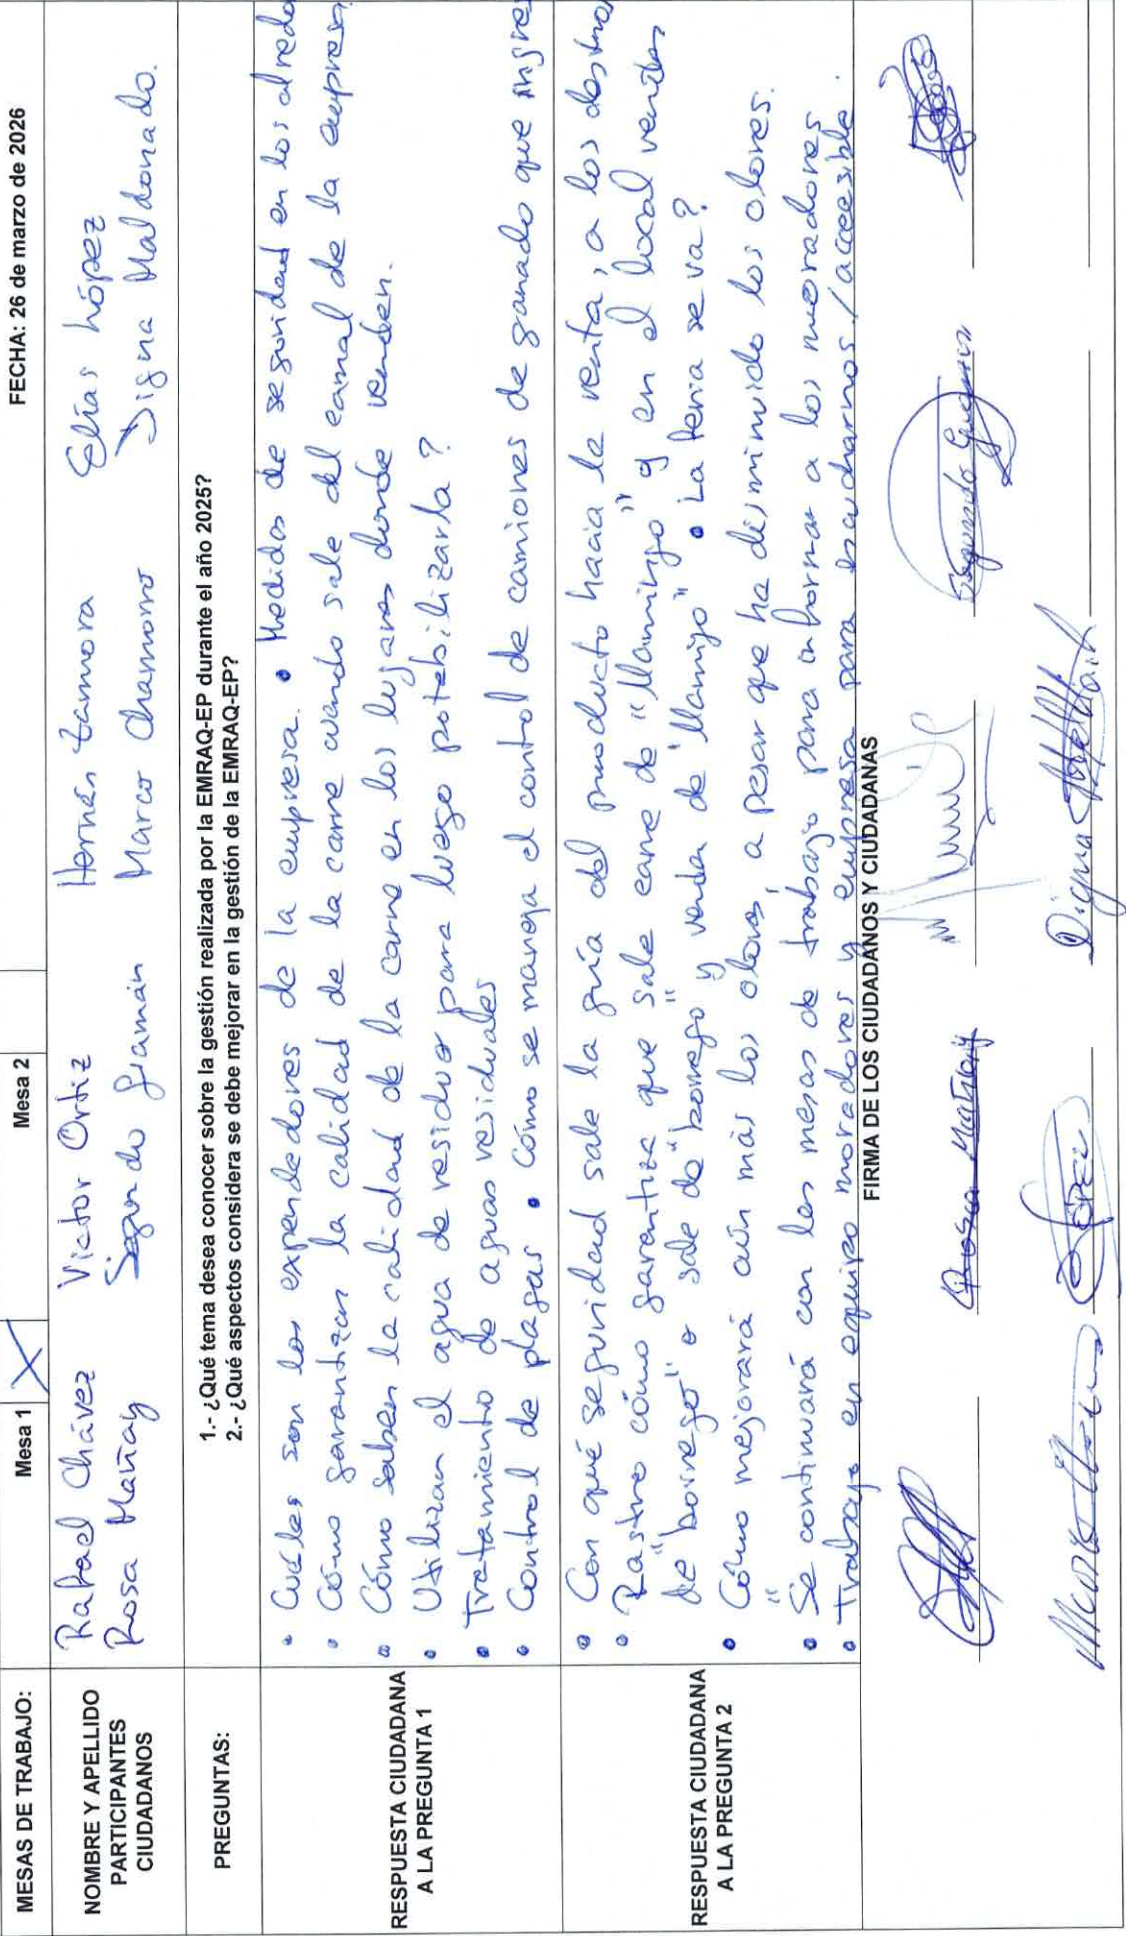 MESAS DE TRABAJO: Mesa 1 X Mesa 2 FECHA: 26 de marzo de 2026
NOMBRE Y APELLIDO PARTICIPANTES CIUDADANOS
Rafael Chávez Victor Ortiz Hernán Zamora Elías López
Rosa Mañay Segundo Guamán Marco Chamorro Digna Maldonado.
PREGUNTAS:
1.- ¿Qué tema desea conocer sobre la gestión realizada por la EMRAQ-EP durante el año 2025?
2.- ¿Qué aspectos considera se debe mejorar en la gestión de la EMRAQ-EP?
RESPUESTA CIUDADANA A LA PREGUNTA 1
• Cuáles son los expendedores de la empresa. • Medidas de seguridad en los alrededo
• Cómo garantizan la calidad de la carne cuando sale del camal de la empresa
• Cómo saben la calidad de la carne en los lugares donde venden.
• Utilizan el agua de residuo para luego potabilizarla?
• Tratamiento de aguas residuales
• Control de plagas • Cómo se maneja el control de camiones de ganado que ingre
RESPUESTA CIUDADANA A LA PREGUNTA 2
• Con qué seguridad sale la guía del producto hacia la venta, a los destino
• Rastro cómo garantiza que sale carne de "Mamingo" y en el local venden
de "borrego" o sale de "borrego" y venden de "Mamigo" • La feria se va?
• Cómo mejorará aún más los olores, a pesar que ha disminuido los olores.
• Se continuará con las mesas de trabajo para informar a los moradores
• Trabajo en equipo moradores y empresa para escucharnos / accesible.
FIRMA DE LOS CIUDADANOS Y CIUDADANAS
Segundo Guamán
López Digna